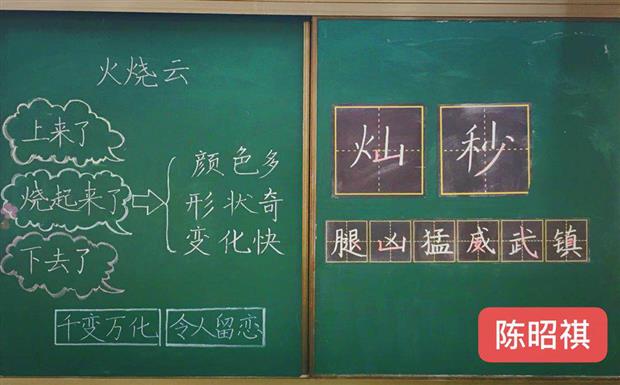 火烧云
上来了
烧起来了
下去了
颜色多
形状奇
变化快
千变万化 令人留恋
灿 秒
腿凶猛威武镇
陈昭祺